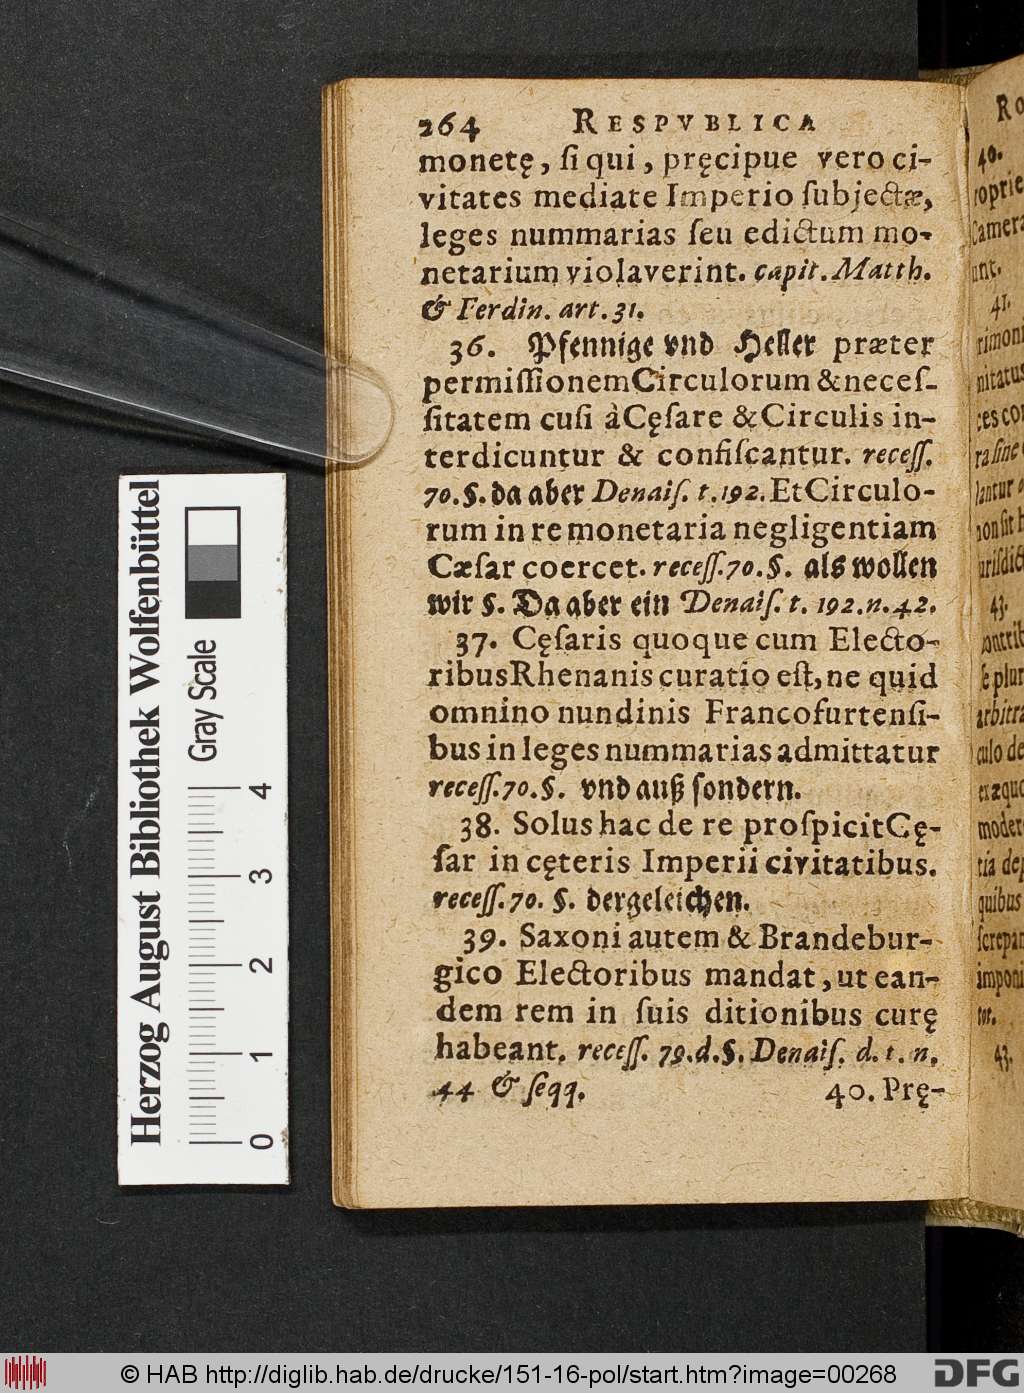 264 RESPVBLICA
monetę, ſi qui, pręcipue vero ci-
vitates mediate Imperio ſubjectæ,
leges nummarias ſeu edictum mo-
netarium violaverint. capit. Matth.
& Ferdin. art. 31.
36. Pfennige vnd Heller præter
permiſſionem Circulorum & neceſ-
ſitatem cuſi à Cęſare & Circulis in-
terdicuntur & confiſcantur. receſſ.
70. §. da aber Denaiſ. t. 192. Et Circulo-
rum in re monetaria negligentiam
Cæſar coercet. receſſ. 70. §. als wollen
wir §. Da aber ein Denaiſ. t. 192. n. 42.
37. Cęſaris quoque cum Electo-
ribus Rhenanis curatio eſt, ne quid
omnino nundinis Francofurtenſi-
bus in leges nummarias admittatur
receſſ. 70. §. vnd auß ſondern.
38. Solus hac de re proſpicit Cę-
ſar in cęteris Imperii civitatibus.
receſſ. 70. §. dergeleichen.
39. Saxoni autem & Brandebur-
gico Electoribus mandat, ut ean-
dem rem in ſuis ditionibus curę
habeant. receſſ. 79. d. §. Denaiſ. d. t. n.
44 & ſeqq. 40. Prę-
40.
41.
43.
43.
Herzog August Bibliothek Wolfenbüttel
Gray Scale
0 1 2 3 4
© HAB http://diglib.hab.de/drucke/151-16-pol/start.htm?image=00268
DFG